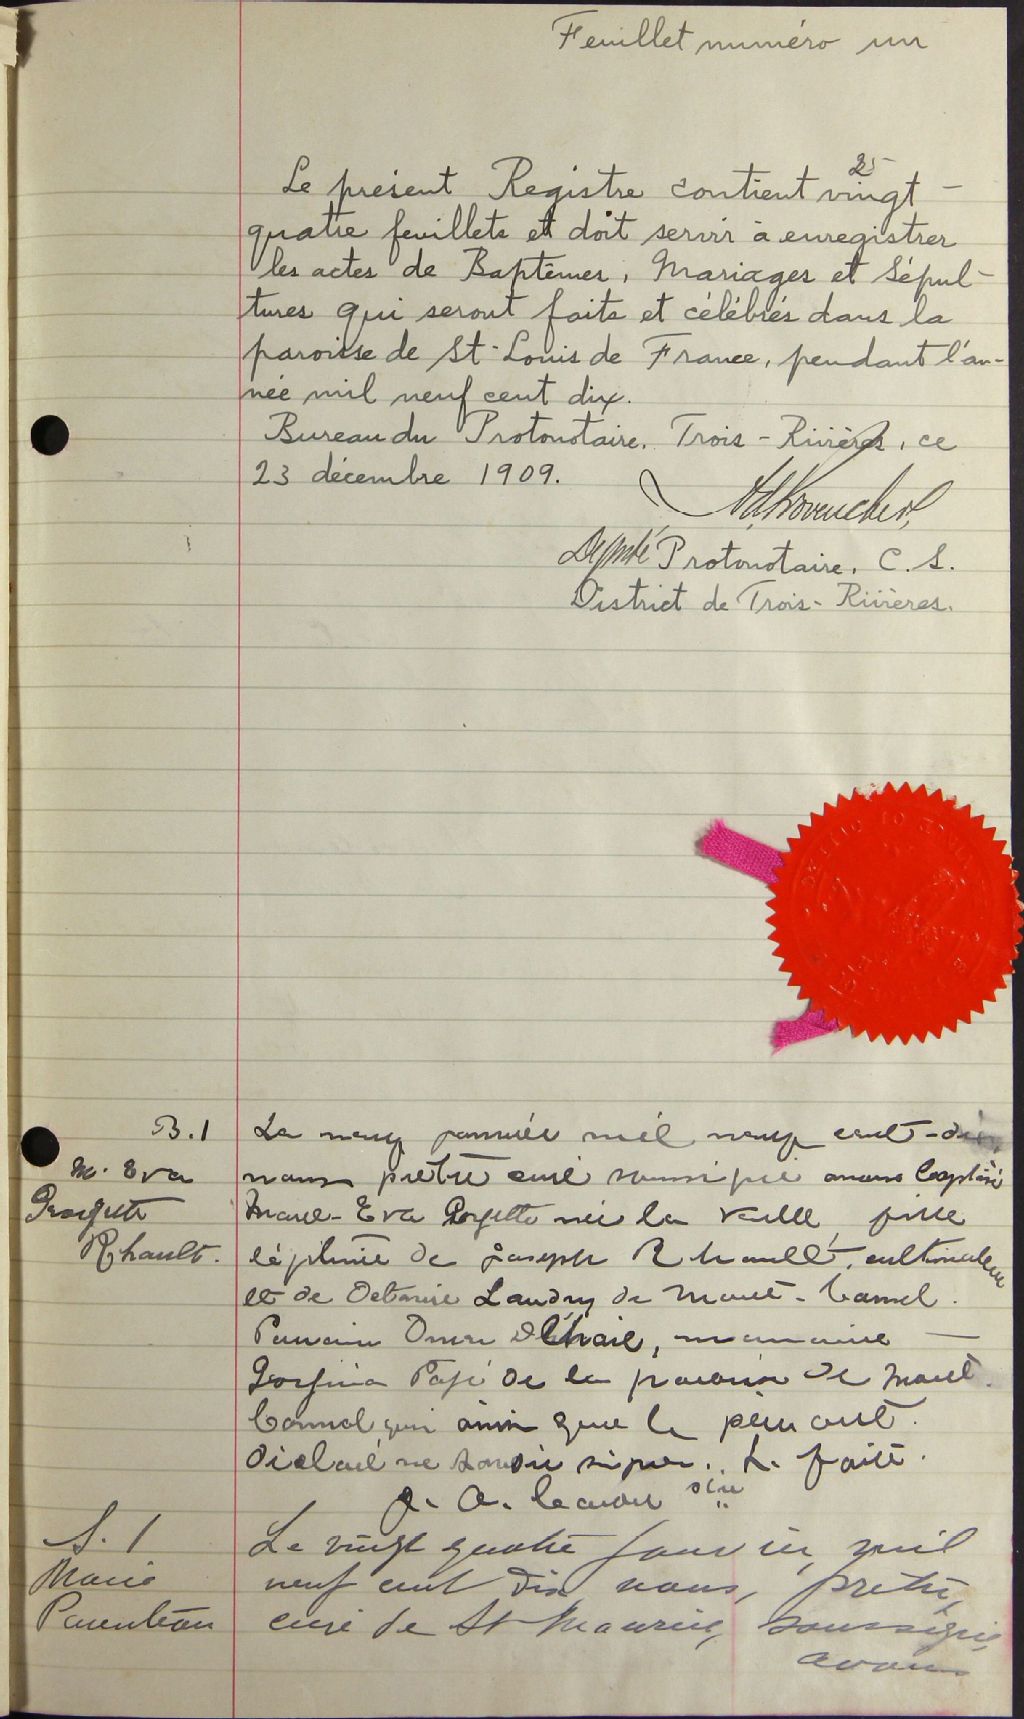 Feuillet numéro un
25
Le présent Registre contient vingt -
quatre feuillets et doit servir à enregistrer
les actes de Baptêmes, Mariages et Sépul-
tures qui seront faits et célébrés dans la
paroisse de St-Louis de France, pendant l'an-
née mil neuf cent dix.
Bureau du Protonotaire, Trois-Rivières, ce
23 décembre 1909.
Député Protonotaire, C. S.
District de Trois-Rivières.
B.1
M. Eva
Georgette
Rhault.
Le neuf janvier mil neuf cent-dix,
nous prêtre curé soussigné avons baptisé
Marie-Eva Georgette née la veille, fille
légitime de Joseph Rhault, cultivateur
et de Landry de Mont-Carmel.
Parrain marraine
de la paroisse de Mont
Carmel qui ainsi que le père ont
déclaré ne savoir signer. L. faite.
J. A.
S. 1
Marie
Parenteau
Le vingt quatre janvier, mil
neuf cent dix nous, prêtre,
curé de St Maurice, soussigné,
avons